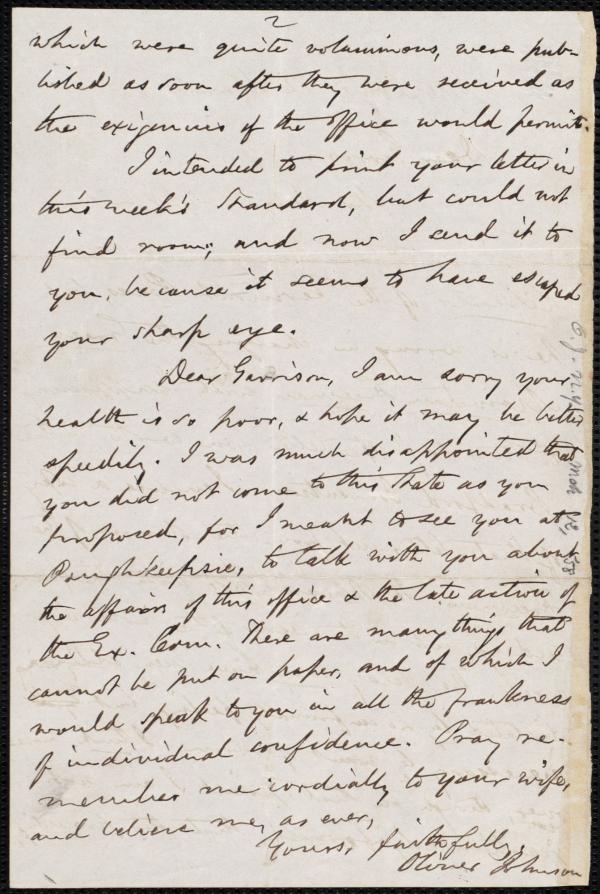 2
which were quite voluminous, were pub-
lished as soon after they were received as
the exigencies of the office would permit.
I intended to print your letter in
this week's Standard, but could not
find room; and now I send it to
you, because it seems to have escaped
your sharp eye.
Dear Garrison, I am sorry your
health is so poor, & hope it may be better
speedily. I was much disappointed that
you did not come to this State as you
proposed, for I meant to see you at
Poughkeepsie, to talk with you about
the affairs of this office & the late action of
the Ex. Com. There are many things that
cannot be put on paper, and of which I
would speak to you in all the frankness
of individual confidence. Pray re-
member me cordially to your wife,
and believe me, as ever,
Yours, faithfully,
Oliver Johnson